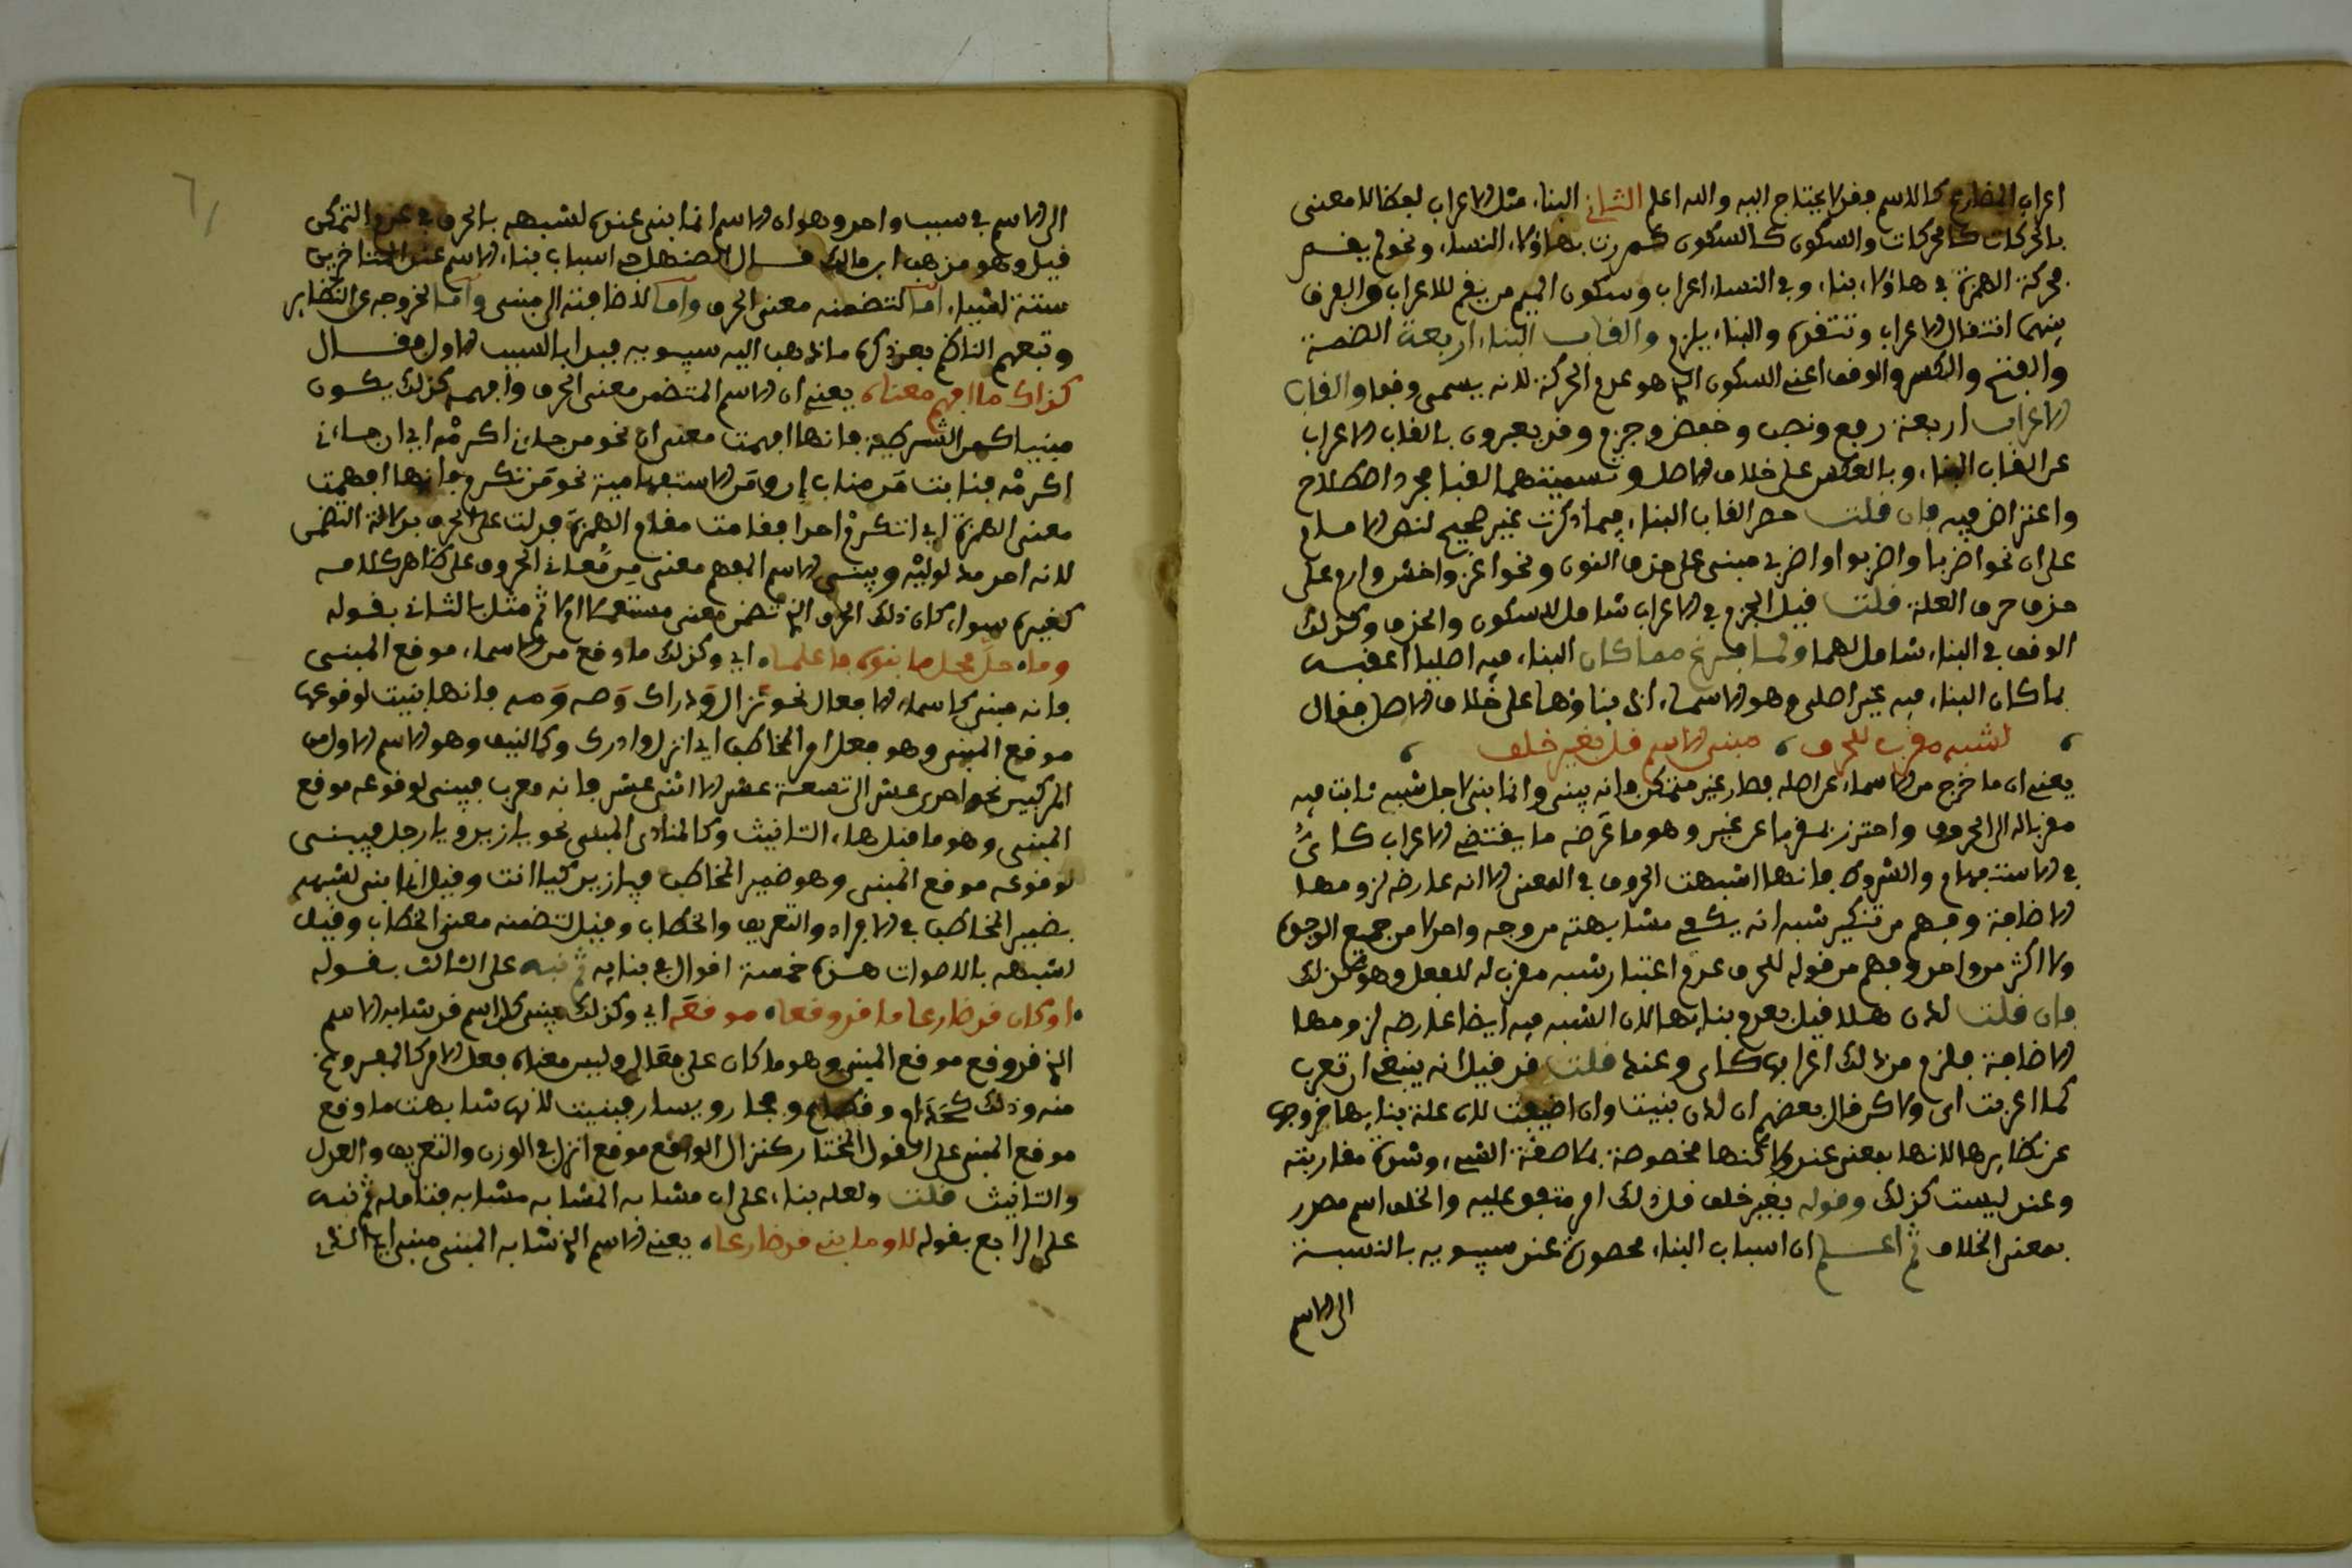 اعراب المضارع كالاسم فقد لا يحتاج اليه والله اعلم الثاني البناء مثل الاعراب لفظا لا معنى
بالحركات كالحركات والسكون كالسكون كمررت بهاؤلاء النساء ونحو لم يقم
فحركة الهمزة في هاؤلاء بناء وفي النساء اعراب وسكون الميم من يقم للاعراب والفرق
بينهما انتقال الاعراب وتنقله والبناء يلزم والقاب البناء اربعة الضمة
والفتح والكسر والوقف اعني السكون الذي هو عدم الحركة لانه يسمى وقفا والقاب
الاعراب اربعة رفع ونصب وخفض وجزم وقد يعبرون بالقاب الاعراب
عن القاب البناء وبالعكس على خلاف الاصل وتسميتهما القبا مجرد اصطلاح
واعتراض فيه فان قلت حصر القاب البناء فيما ذكرت غير صحيح لنص الامام
على ان نحو اضربا واضربوا واضربي مبني على حذف النون ونحو اغز واخش وارم على
حذف حرف العلة قلت قيل الجزم في الاعراب شامل للسكون والحذف وكذلك
الوقف في البناء شامل لهما ولما فرغ مما كان البناء فيه اصليا اعقبه
بما كان البناء فيه غير اصلي وهو الاسماء اذ بناؤها على خلاف الاصل فقال
لشبه مقرب للحرف مبني الاسم قل بغير خلف
يعني ان ما خرج من الاسماء عن اصله فصار غير متمكن فانه يبنى وانما بني لاجل شبه ثابت فيه
مقرباله الى الحروف واحترز بمقربا عن غيره وهو ما عارضه ما يقتضي الاعراب كاي
في الاستفهام والشروط فانها اشبهت الحروف في المعنى الا انه عارضه لزومها
الاضافة وفهم من تنكير شبه انه يكفي مشابهته من وجه واحد لا من جميع الوجوه
ولا اكثر من واحد وفهم من قوله للحرف عدم اعتبار شبه مقرب له للفعل وهو كذلك
فان قلت لدن هلا قيل بعدم بنائها لان الشبه فيه ايضا عارضه لزومها
الاضافة فلزم من ذلك اعرابها كاي وعند قلت قد قيل انه ينبغي ان تعرب
كما اعربت اي ولاكن قال بعضهم ان لدن بنيت وان اضيفت لان علة بنائها خروجها
عن نظايرها لانها بمعنى عند ولاكنها مخصوصة بملاصقة الشيء وشدة مقاربته
وعند ليست كذلك وقوله بغير خلف قل ذلك امر متفق عليه والخلف اسم مصدر
بمعنى الخلاف ثم اعلم ان اسباب البناء محصورة عند سيبويه بالنسبة
الى الاسم
الى الاسم في سبب واحد وهو ان الاسم انما بني عنده لشبهه بالحرف في عدم التمكن
قيل وهو مذهب ابن مالك قال اسباب بناء الاسم عند المتاخرين
ستة اشياء اما لتضمنه معنى الحرف واما لاضافته الى مبني واما لخروجه عن النظاير
وتبعهم الناظم بعد ذكره ما ذهب اليه سيبويه فبدا بالسبب الاول فقال
كذاك ما افهم معناه يعني ان الاسم المتضمن معنى الحرف وافهمه كذلك يكون
مبنيا كمن الشرطية فانها افهمت معنى ان نحو من جاءني اكرمه اي ان جاءني
اكرمه فنابت من مناب ان ومن الاستفهامية نحو من تكرم فانها افهمت
معنى الهمزة اي اتكرم احدا فقامت مقام الهمزة فدلت على الحرف بدلالة التضمن
لانه احد مدلوليه ويبنى الاسم المفهم معنى من معاني الحروف على ظاهر كلامه
كغيره سواء كان ذلك الحرف الذي تضمن معنى مستعملا ام لا ثم مثل بالثاني بقوله
وما حل محل ما بنوه فاعلما اي وكذلك ما وقع من الاسماء موقع المبني
فانه مبني كاسماء الافعال نحو نزال ودراك وصه ومه فانها بنيت لوقوعها
موقع المبني وهو فعل امر المخاطب اي انزل وادرك وكالنيف وهو الاسم الاول من
المركبين نحو احدى عشر الى تسعة عشر الا اثني عشر فانه معرب فيبنى لوقوعه موقع
المبني وهو ما قبل هاء التانيث وكالمنادى المبني نحو يا زيد ويا رجل فيبنى
لوقوعه موقع المبني وهو ضمير المخاطب فيا زيد كيا انت وقيل انما بني لشبهه
بضمير المخاطب في الافراد والتعريف والخطاب وقيل لتضمنه معنى الخطاب وقيل
لشبهه بالاصوات هذه خمسة اقوال في بنائه ثم نبه على الثالث بقوله
او كان قد ضارع ما قد وقعا موقعه اي وكذلك يبنى كل اسم قد شابه الاسم
الذي قد وقع موقع المبني وهو ما كان على فعال وليس معناه فعل الامر كالمفروغ
منه وذلك كحذام وقطام وفجار ويسار فبنيت لانها شابهت ما وقع
موقع المبني على القول المختار كنزال الواقع موقع انزل في الوزن والتعريف والعدل
والتانيث قلت ولعله بناء على ان مشابه المشابه مشابه فتامله ثم نبه
على الرابع بقوله او ما بني قد ضارعا يعني الاسم الذي شابه المبني مبني ايضا